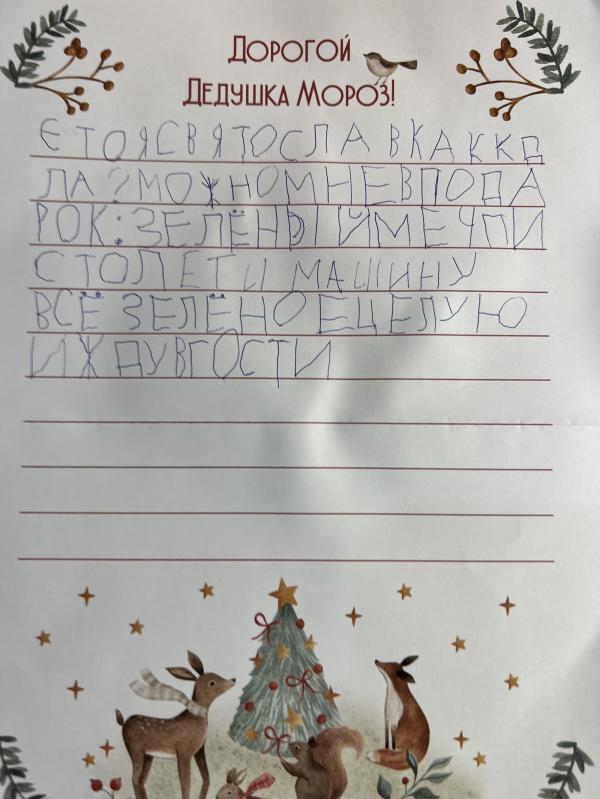 ДОРОГОЙ
ДЕДУШКА МОРОЗ!
ЄТОЯСВЯТОСЛАВКАККД
ЛА?МОЖНОМНЕВПОДА
РОК:ЗЕЛЁНЫЙМЕЧПИ
СТОЛЕТИМАШИНУ
ВСЁЗЕЛЁНОЕЦЕЛУЮ
ИЖДУВГОСТИ